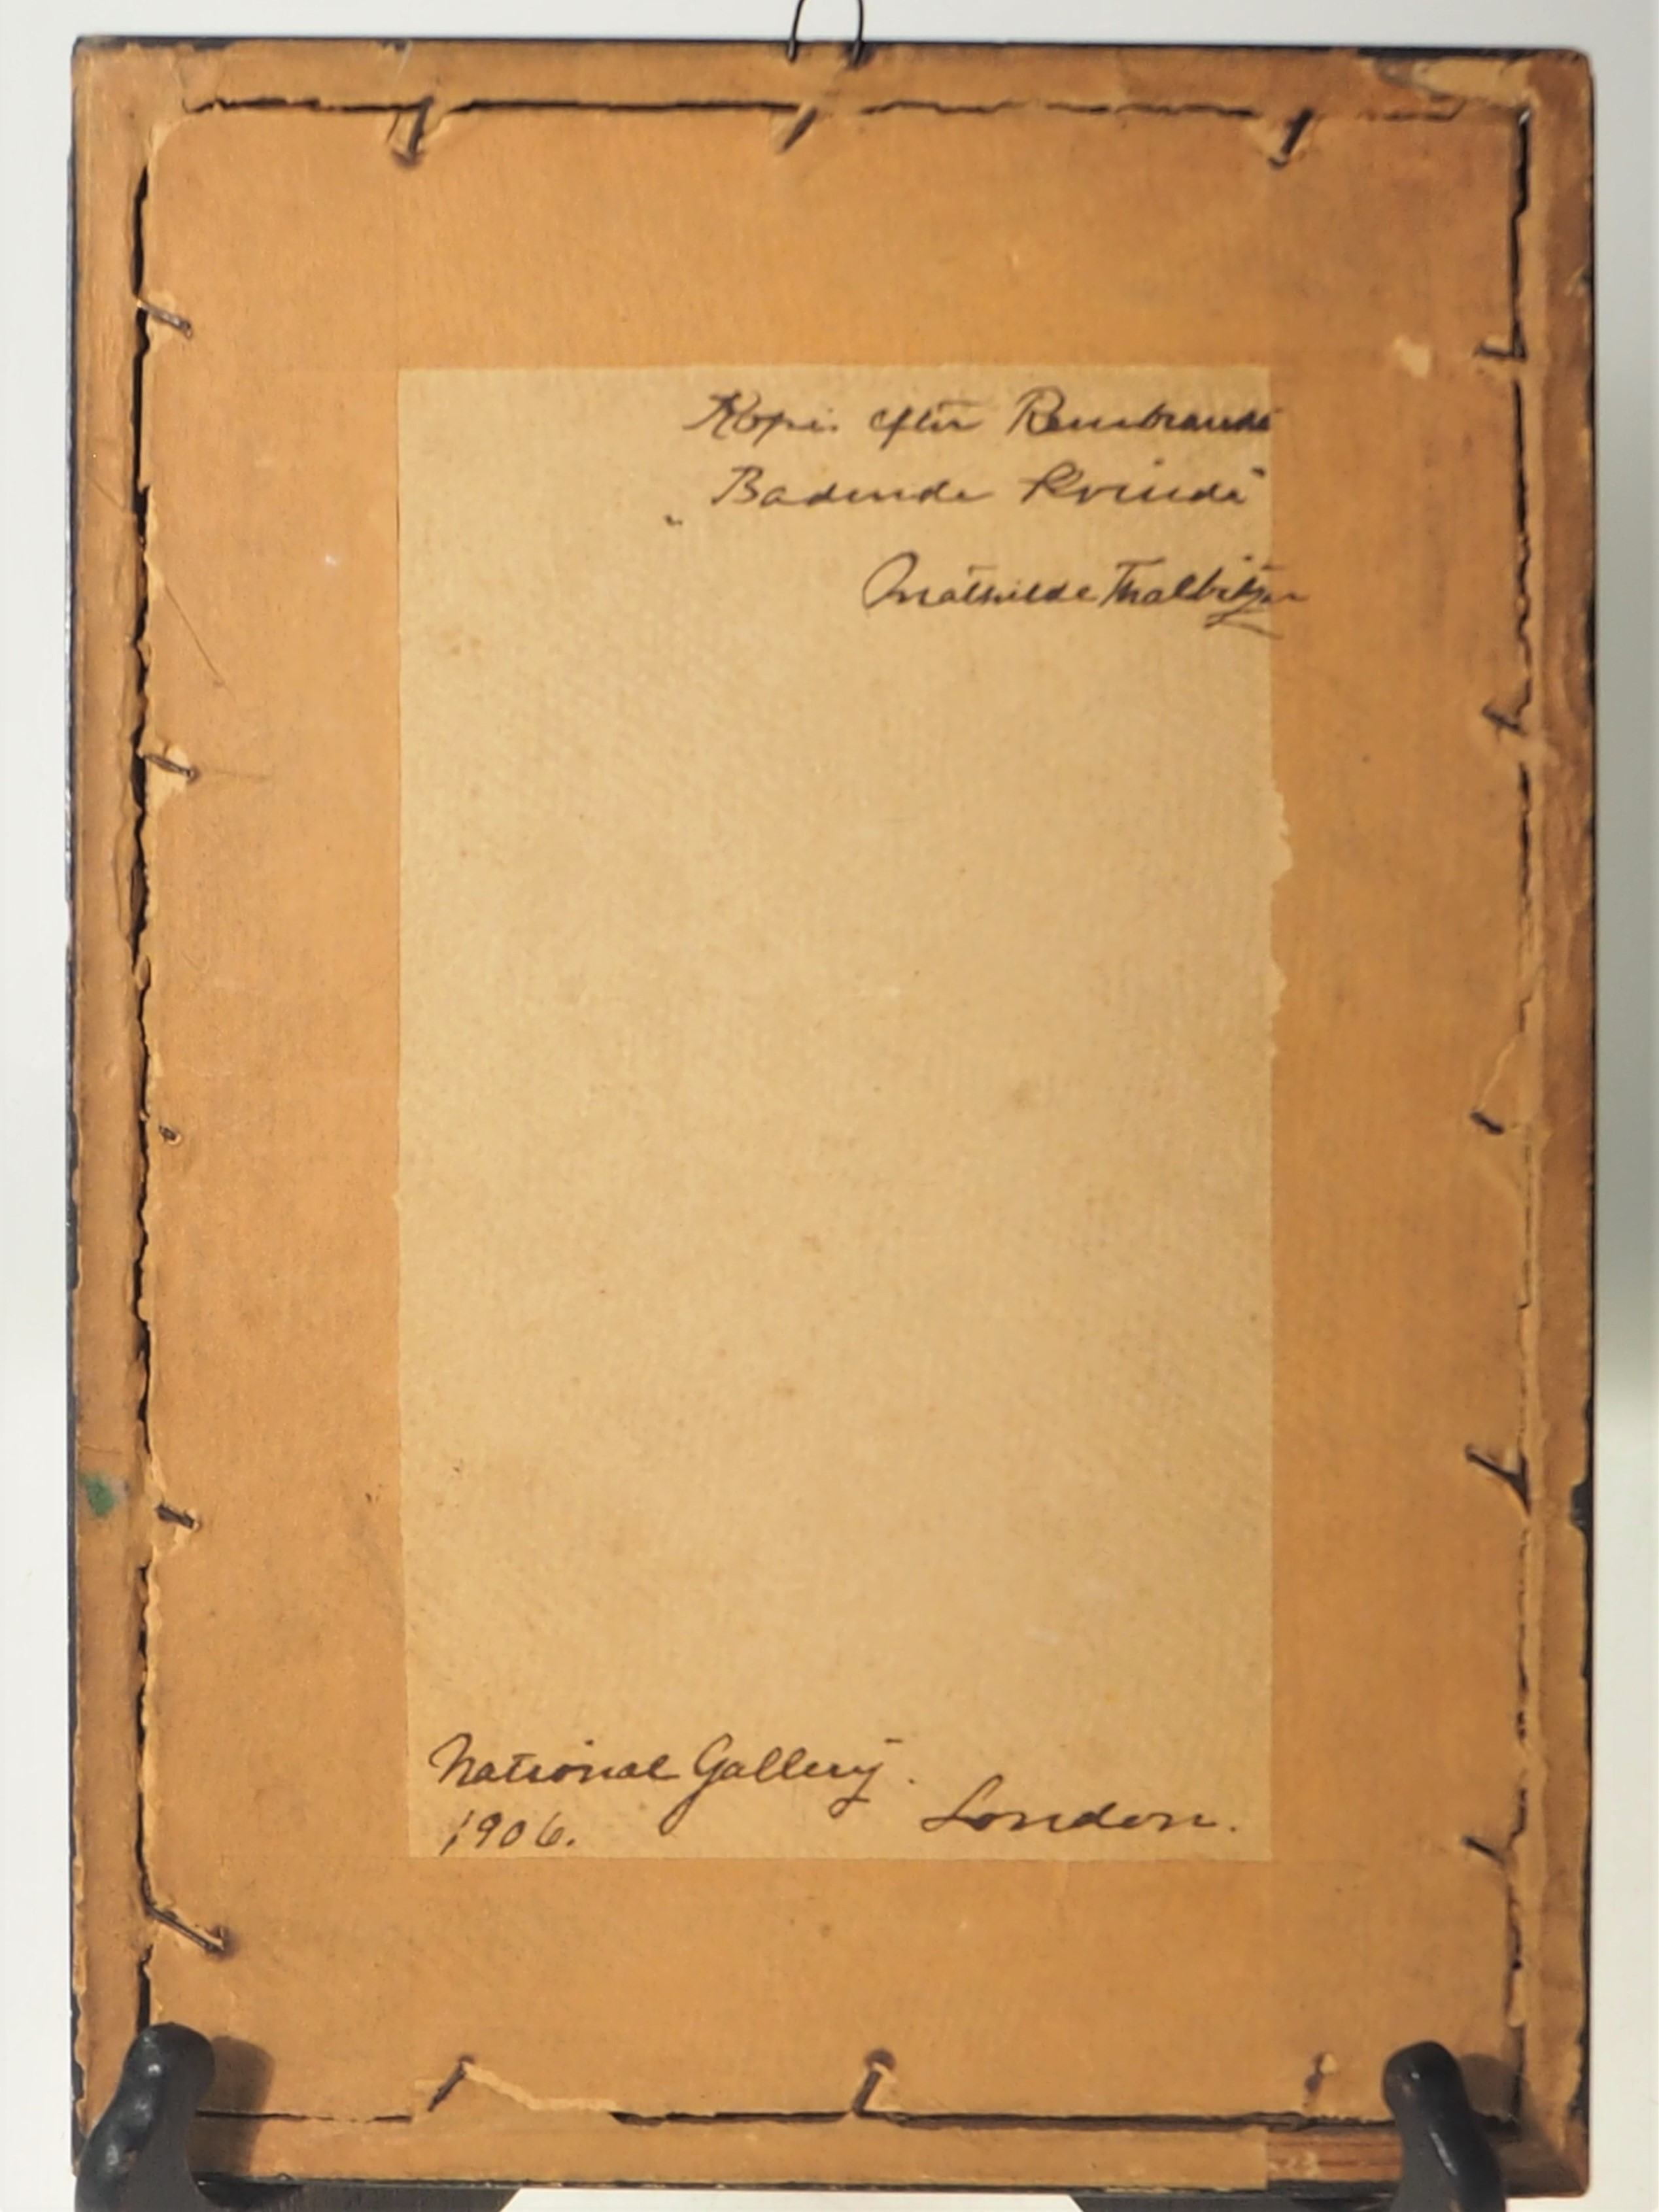 Kopi efter Rembrandt
„Badende Kvinde"
Mathilde Thalbitzer
National Gallery.
London.
1906.